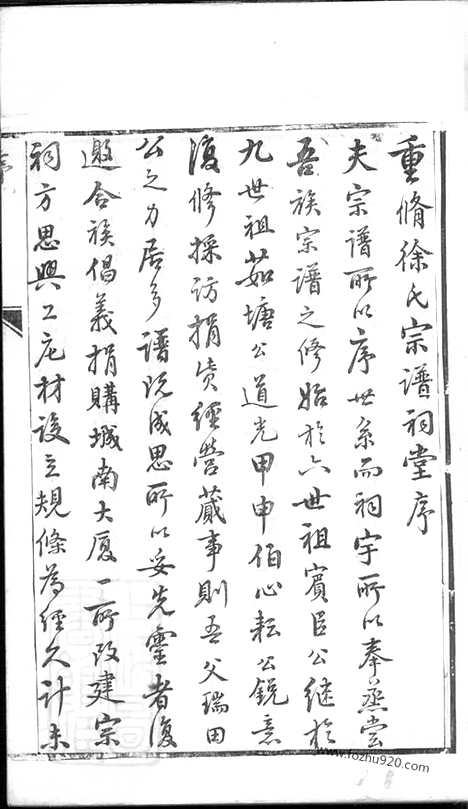 重脩徐氏宗譜祠堂序
夫宗譜所以序世系而祠宇所以奉烝嘗
吾族宗譜之修始於六世祖賓臣公继於
九世祖茹塘公道光甲申伯心耘公銳意
復修採访捐赀經營蕆事則吾父瑞田
公之力居多譜既成思所以妥先靈者復
邀合族倡義捐購城南大厦一所改建宗
祠方思興工庀材設立規條為經久计未
www.fozhu920.com